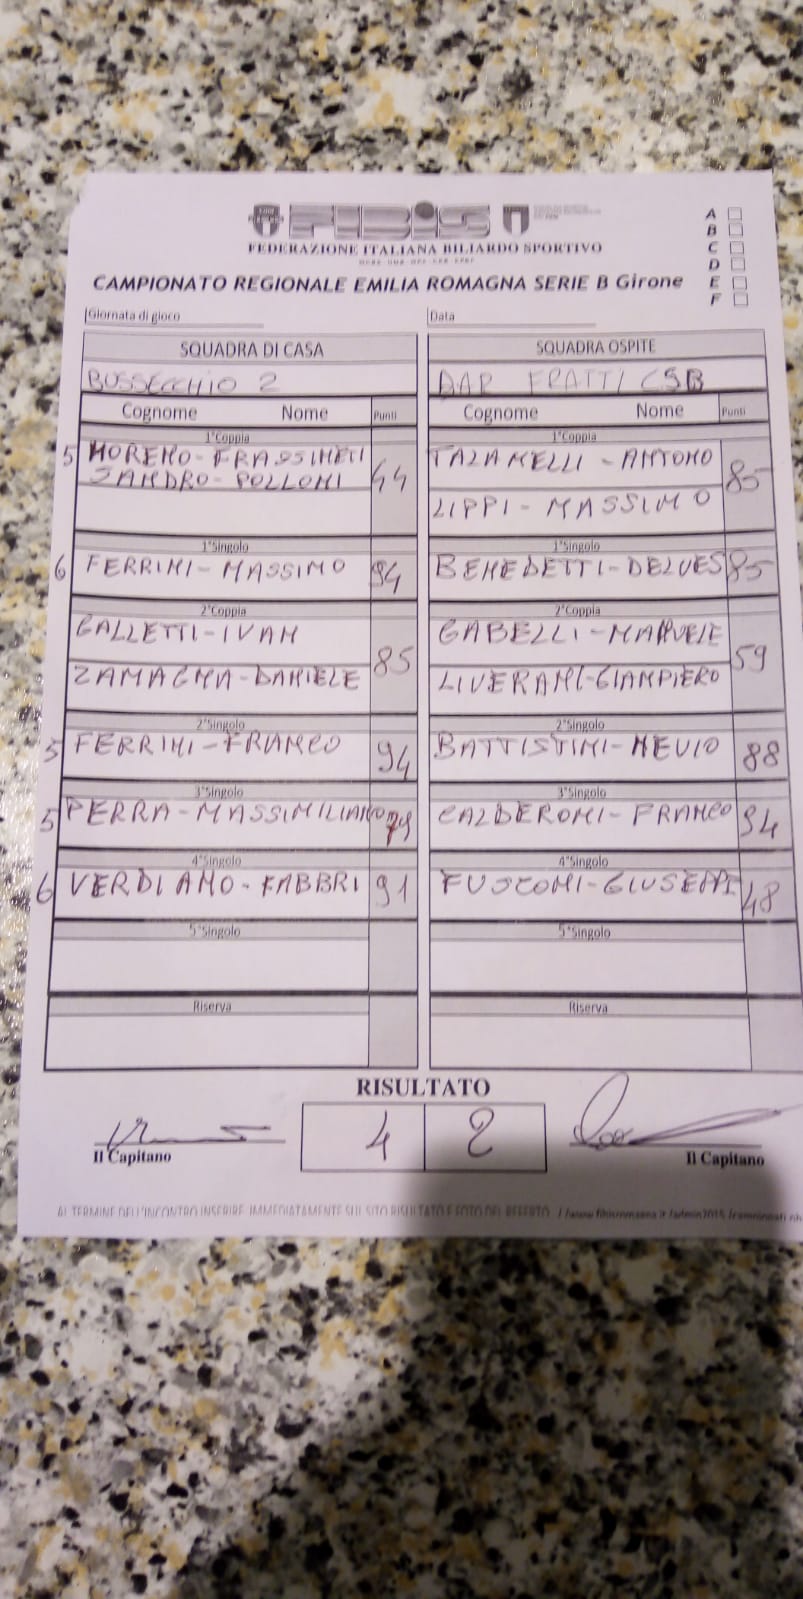 FIBIS
FEDERAZIONE ITALIANA BILIARDO SPORTIVO
CAMPIONATO REGIONALE EMILIA ROMAGNA SERIE B Girone
A
B
C
D
E
F
Giornata di gioco
Data
SQUADRA DI CASA
SQUADRA OSPITE
BUSSECCHIO 2
BAR FRATTI CSB
Cognome Nome Punti
Cognome Nome Punti
1°Coppia
1°Coppia
5 MORENO - FRASSINETI
SANDRO - POLLONI
44
TAZANELLI - ANTONO
LIPPI - MASSIMO
85
1°Singolo
1°Singolo
6 FERRINI - MASSIMO 94
BENEDETTI - DELVES 85
2°Coppia
2°Coppia
GALLETTI - IVAN
ZAMAGNA - DANIELE
85
GABELLI - MANUELE
LIVERANI - GIAMPIERO
59
2°Singolo
2°Singolo
5 FERRINI - FRANCO 94
BATTISTINI - NEVIO 88
3°Singolo
3°Singolo
5 PERRA - MASSIMILIANO 79
CALDERONI - FRANCO 94
4°Singolo
4°Singolo
6 VERDIANO - FABBRI 91
FUSCONI - GIUSEPPE 48
5°Singolo
5°Singolo
Riserva
Riserva
RISULTATO
4 2
Il Capitano
Il Capitano
AL TERMINE DELL'INCONTRO INSERIRE IMMEDIATAMENTE SUL SITO RISULTATO E FOTO DEL REFERTO